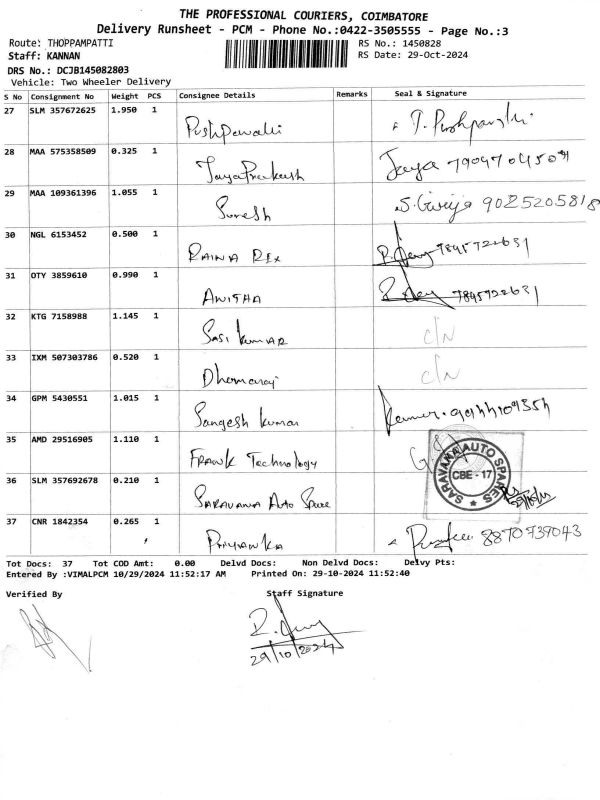 THE PROFESSIONAL COURIERS, COIMBATORE
Delivery Runsheet - PCM - Phone No.:0422-3505555 - Page No.:3
Route: THOPPAMPATTI RS No.: 1450828
Staff: KANNAN RS Date: 29-Oct-2024
DRS No.: DCJB145082803
Vehicle: Two Wheeler Delivery
S No Consignment No Weight PCS Consignee Details Remarks Seal & Signature
27 SLM 357672625 1.950 1 Pushpavalli
28 MAA 575358509 0.325 1 JayaPrakash Jaya
29 MAA 109361396 1.055 1 Suresh S. Girija 9025205818
30 NGL 6153452 0.500 1 RAINA REX 7845722631
31 OTY 3859610 0.990 1 ANITHA 7845722631
32 KTG 7158988 1.145 1 SASI KUMAR C/N
33 IXM 507303786 0.520 1 Dharmaraj C/N
34 GPM 5430551 1.015 1 Sangesh kumar
35 AMD 29516905 1.110 1 FRANK Technology
36 SLM 357692678 0.210 1 SARAVANA Auto Spare SARAVANA AUTO SPARES CBE - 17
37 CNR 1842354 0.265 1 PRIYANKA 8870739043
Tot Docs: 37 Tot COD Amt: 0.00 Delvd Docs: Non Delvd Docs: Delvy Pts:
Entered By :VIMALPCM 10/29/2024 11:52:17 AM Printed On: 29-10-2024 11:52:40
Verified By Staff Signature
29/10/2024